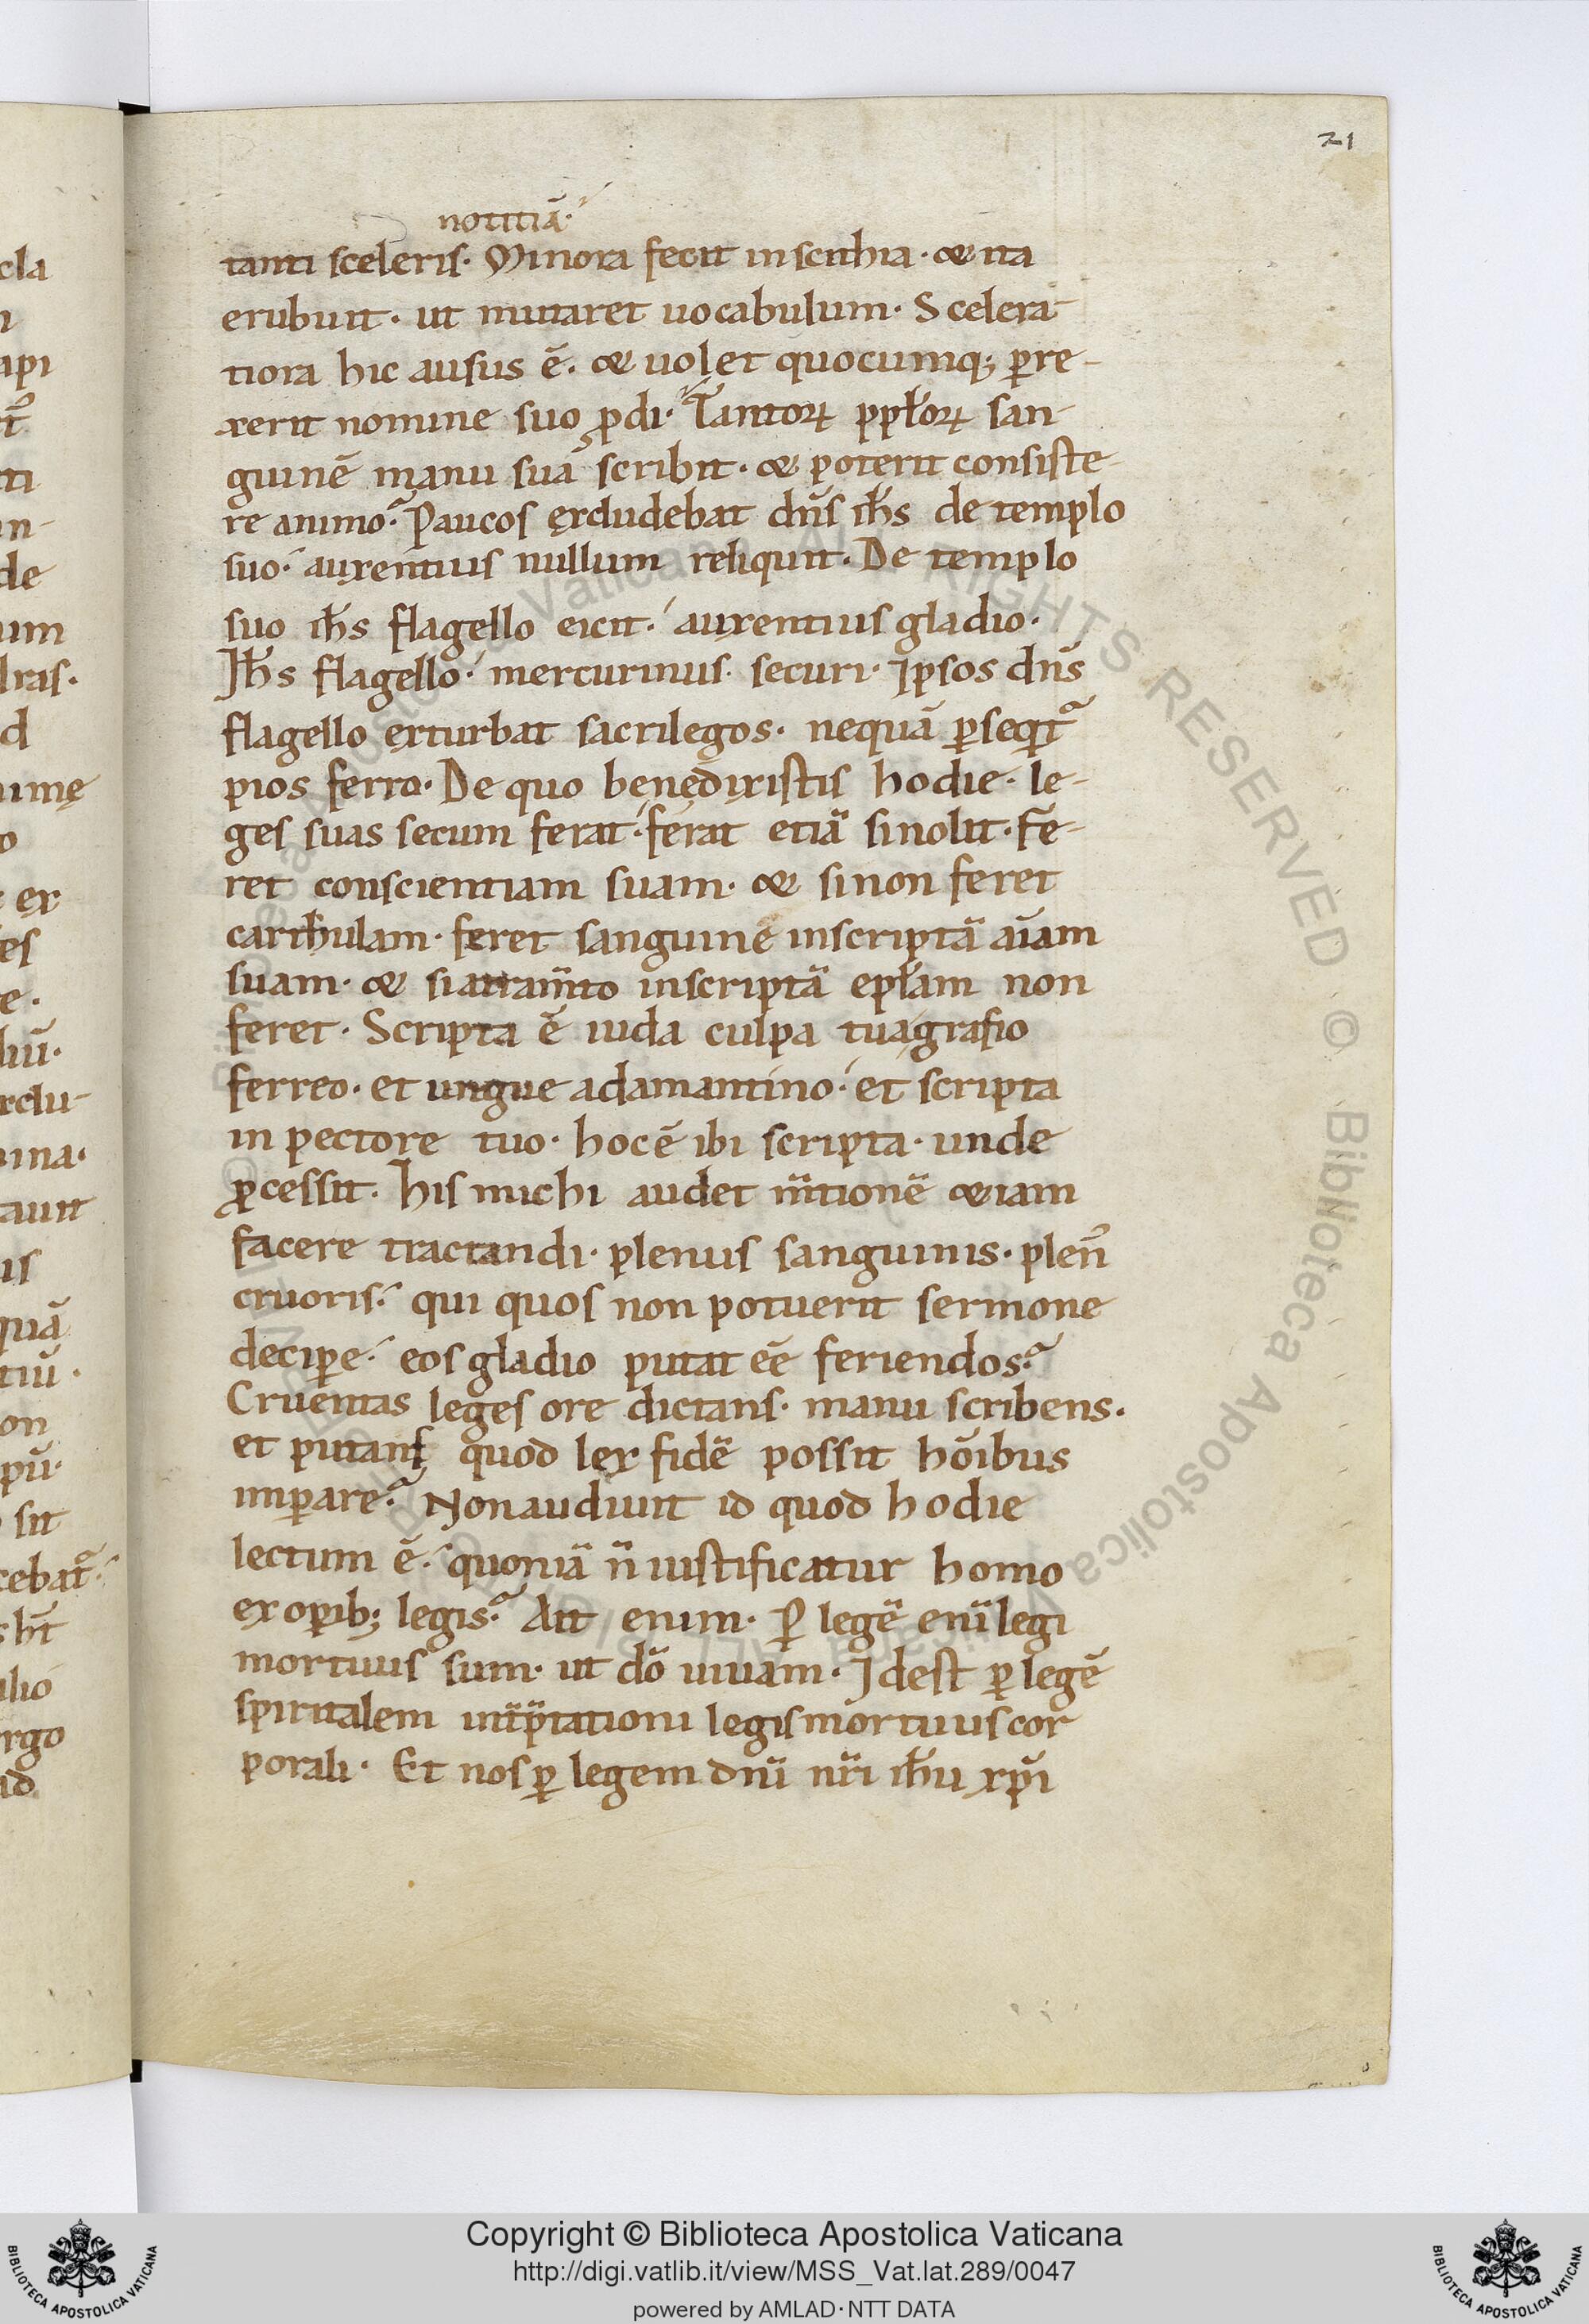 21
notitiā·
tanti sceleris· Minora fecit in scithia· & ita
erubuit· ut mutaret uocabulum· Scelera-
tiora hic ausus ē· & uolet quocumq; ꝑre-
xerit nomine suo ꝓdi· Tantoꝝ ppłoꝝ san-
guinē manu suā scribit· & poterit consiste-
re animo? Paucos excludebat dn̄s ih̄s de templo
suo· auxentius nullum reliquit· De templo
suo ih̄s flagello eicit· auxentius gladio·
Ih̄s flagello· mercurinus· securi· Ipsos dn̄s
flagello exturbat sacrilegos· nequā ꝑseqt̃
pios ferro· De quo benedixistis hodie· le-
ges suas secum ferat· ferat etiā si nolit· fe-
ret conscientiam suam· & si non feret
carthulam· feret sanguine inscriptā aīam
suam· & si attram̄to inscriptā epłam non
feret· Scripta ē iuda culpa tua grafio
ferreo· et ungue adamantino· et scripta
in pectore tuo· hoc ē ibi scripta· unde
ꝓcessit· his michi audet m̄tionē & iam
facere tractandi· plenus sanguinis· plen᾽
cruoris· qui quos non potuerit sermone
deciꝑe· eos gladio putat eē feriendos?
Cruentas leges ore dictans· manu scribens·
et putans quod lex fidē possit hōibus
imꝑare? Non audiuit id quod hodie
lectum ē· quoniā n̄ iustificatur homo
ex oꝑib; legis? Ait enim· ꝑ legē enī legi
mortuus sum· ut dō uiuam· Idest ꝑ legē
spiritalem int̄p̄tationi legis mortuus cor
porali· Et nos ꝑ legem dn̄i nr̄i ih̄u xp̄i
cla
api
de
um
dras·
d
ex
es
e·
xclu-
mina·
tauit
us
quā
tiū·
on
pū·
sit
ebat̃·
ht̄
ilio
rgo
id
© Biblioteca Apostolica Vaticana ALL RIGHTS RESERVED © Biblioteca Apostolica Vaticana ALL RIGHTS RESERVED
Copyright © Biblioteca Apostolica Vaticana
http://digi.vatlib.it/view/MSS_Vat.lat.289/0047
powered by AMLAD·NTT DATA
BIBLIOTECA APOSTOLICA VATICANA
BIBLIOTECA APOSTOLICA VATICANA